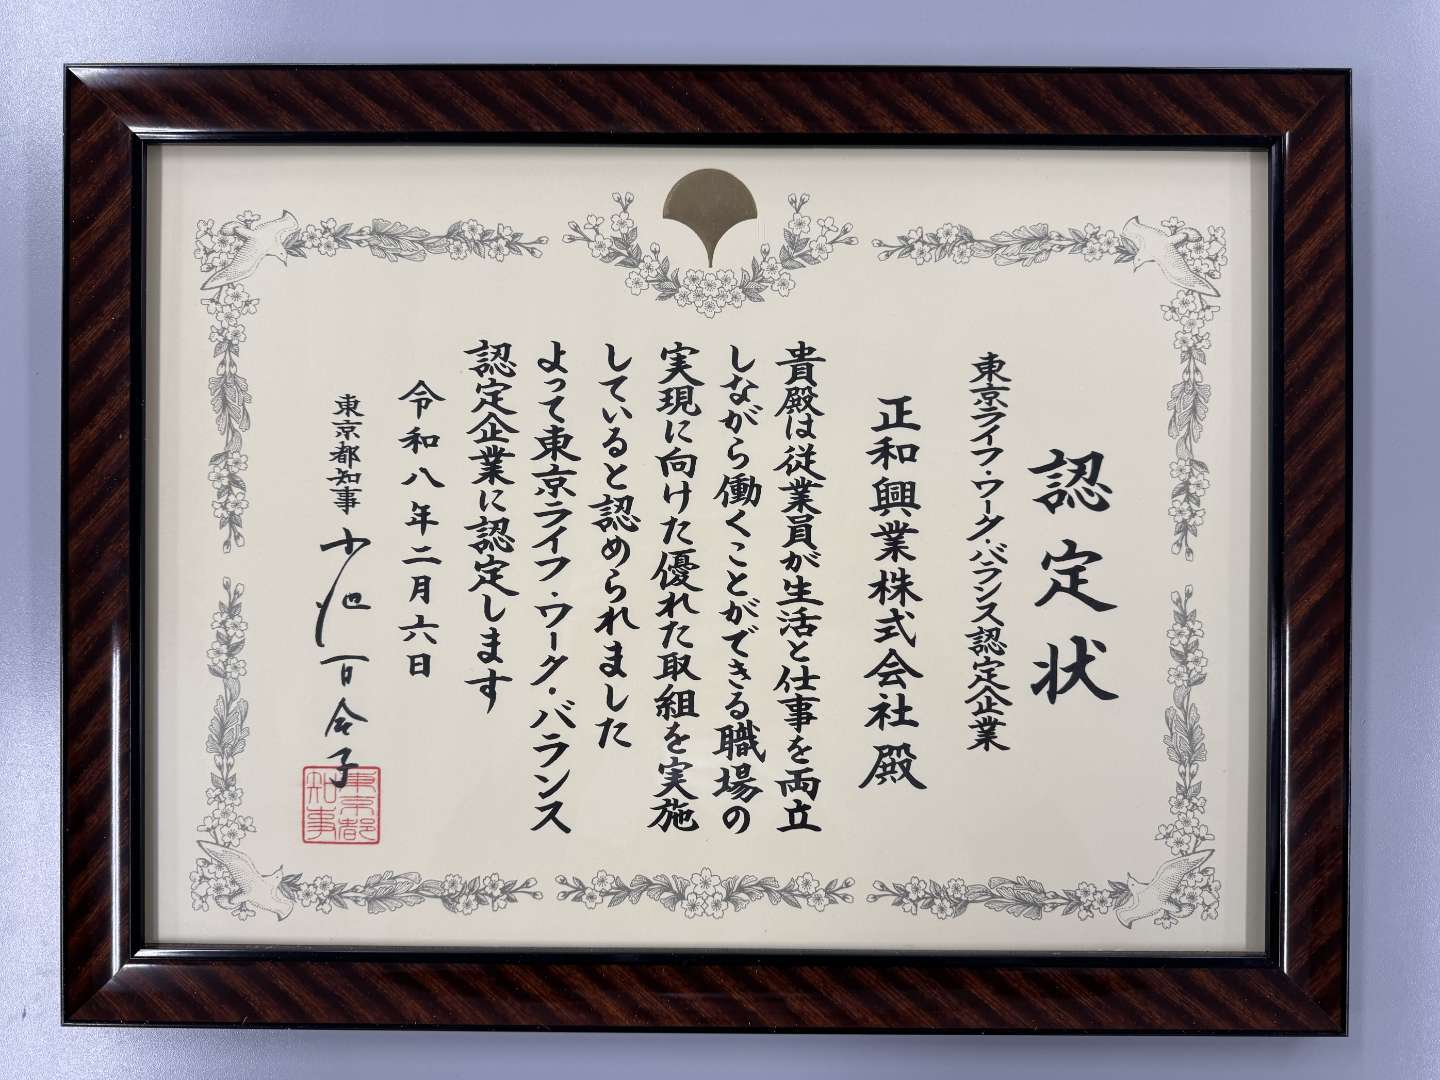 認定状
東京ライフ・ワーク・バランス認定企業
正和興業株式会社 殿
貴殿は従業員が生活と仕事を両立
しながら働くことができる職場の
実現に向けた優れた取組を実施
していると認められました
よって東京ライフ・ワーク・バランス
認定企業に認定します
令和八年二月六日
東京都知事 小池百合子
東京都
知事